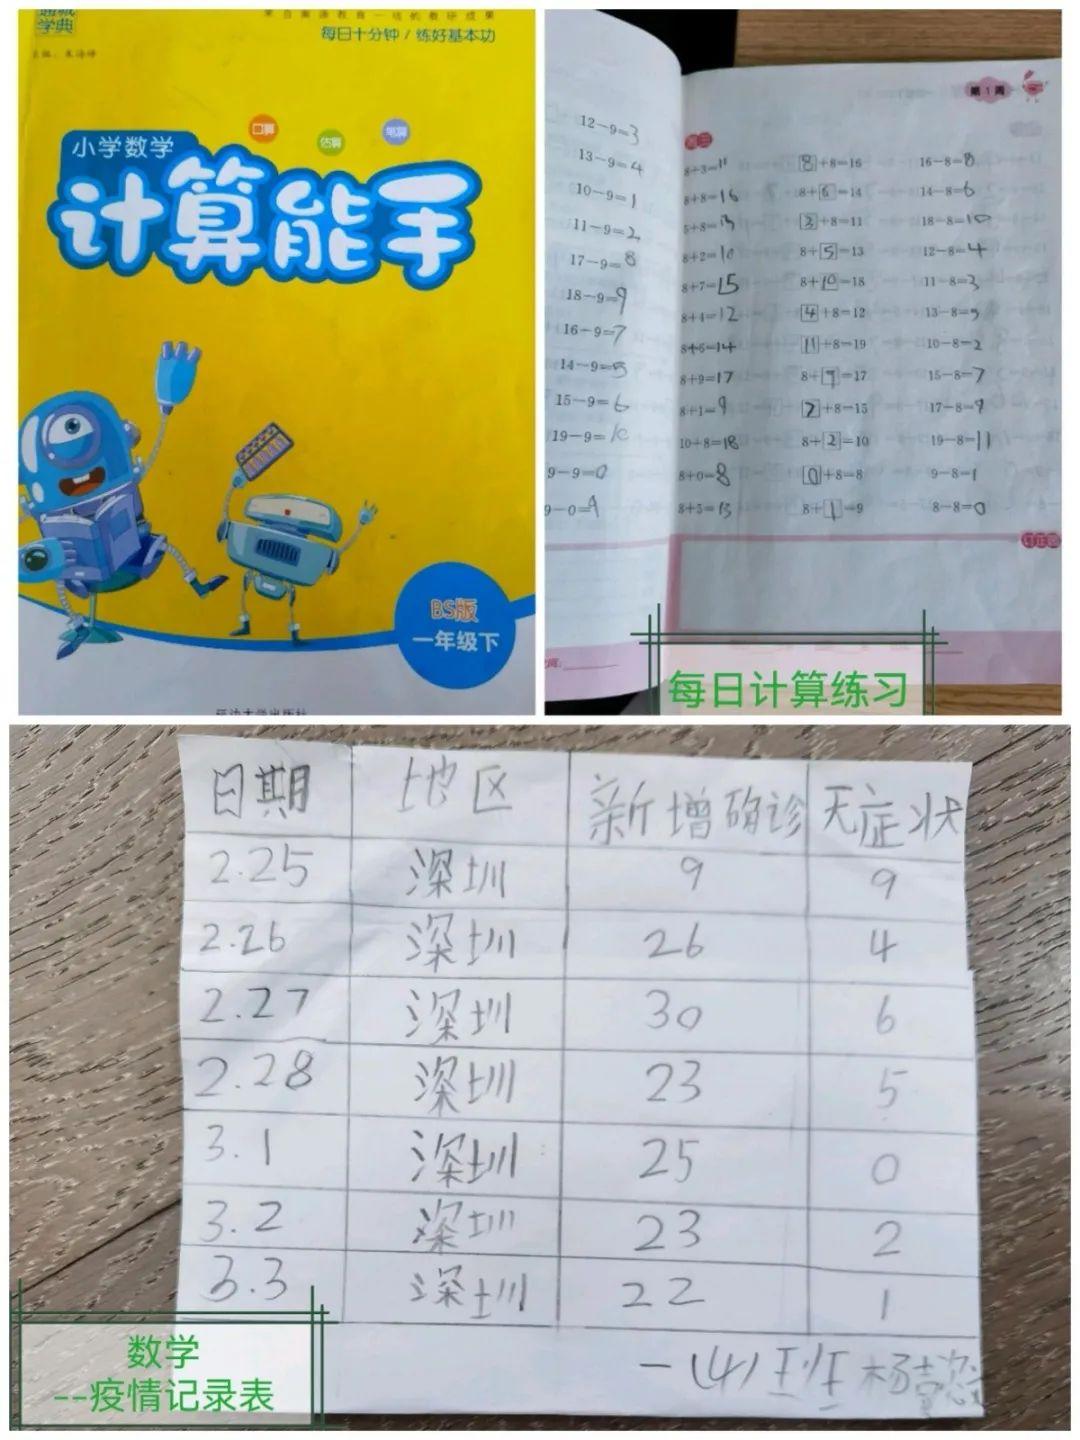 通城学典
来自南通教育一线的教研成果
每日十分钟/练好基本功
小学数学
口算
估算
笔算
计算能手
BS版
一年级下
延边大学出版社
12-9=3
13-9=4
10-9=1
11-9=2
17-9=8
18-9=9
16-9=7
14-9=5
15-9=6
19-9=10
9-9=0
9-0=9
第1周
周三
8+3=11 8+8=16 16-8=8
8+8=16 8+6=14 14-8=6
5+8=13 3+8=11 18-8=10
8+2=10 8+5=13 12-8=4
8+7=15 8+10=18 11-8=3
8+4=12 4+8=12 13-8=5
8+6=14 11+8=19 10-8=2
8+9=17 8+9=17 15-8=7
8+1=9 7+8=15 17-8=9
10+8=18 8+2=10 19-8=11
8+0=8 0+8=8 9-8=1
8+5=13 8+1=9 8-8=0
订正栏
每日计算练习
日期 地区 新增确诊 无症状
2.25 深圳 9 9
2.26 深圳 26 4
2.27 深圳 30 6
2.28 深圳 23 5
3.1 深圳 25 0
3.2 深圳 23 2
3.3 深圳 22 1
一(4)班 杨
数学
--疫情记录表